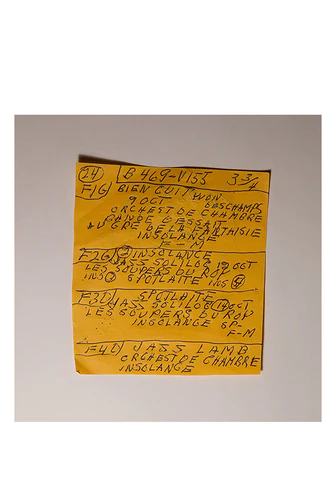 24 B 469-V155 3-3/4
F1G BIEN CUIT YVON
9 OCT DESCHAMPS
ORCHEST DE CHAMBRE
BANDE DESSAIT
AU GRE DE LA FANTAISIE
INSOLANGE
F-M
F2G 2 INSOLANCE
JASS SOLILOG 19 OCT
LES SOUPERS DU ROY
INS SPOTLAITE INS
F3D SPOTLAITE
JASS SOLILOG 19 OCT
LES SOUPERS DU ROY
INSOLANGE SP-
F-M
F4D JASS LAMB
ORCHEST DE CHAMBRE
INSOLANGE